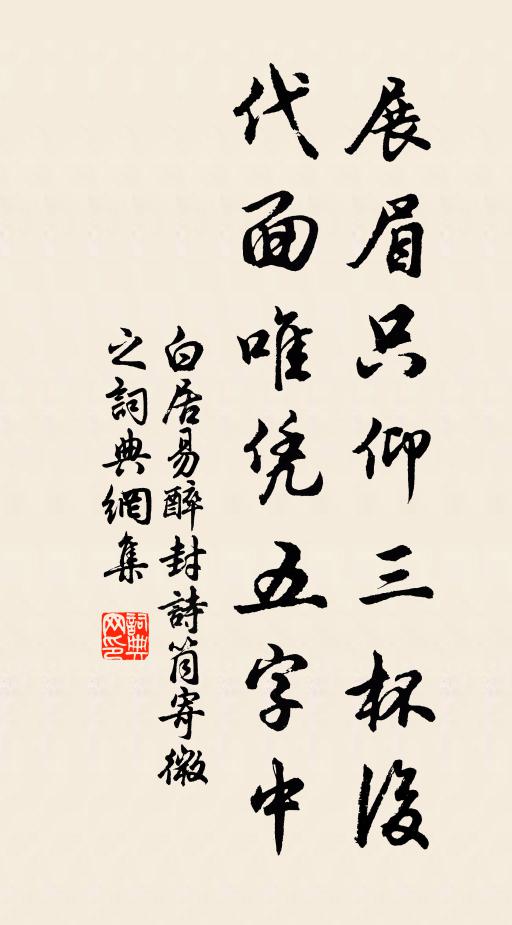 展眉只仰三杯後
代面唯凭五字中
白居易醉封詩筒寄微
之詞典網集
詞典網印